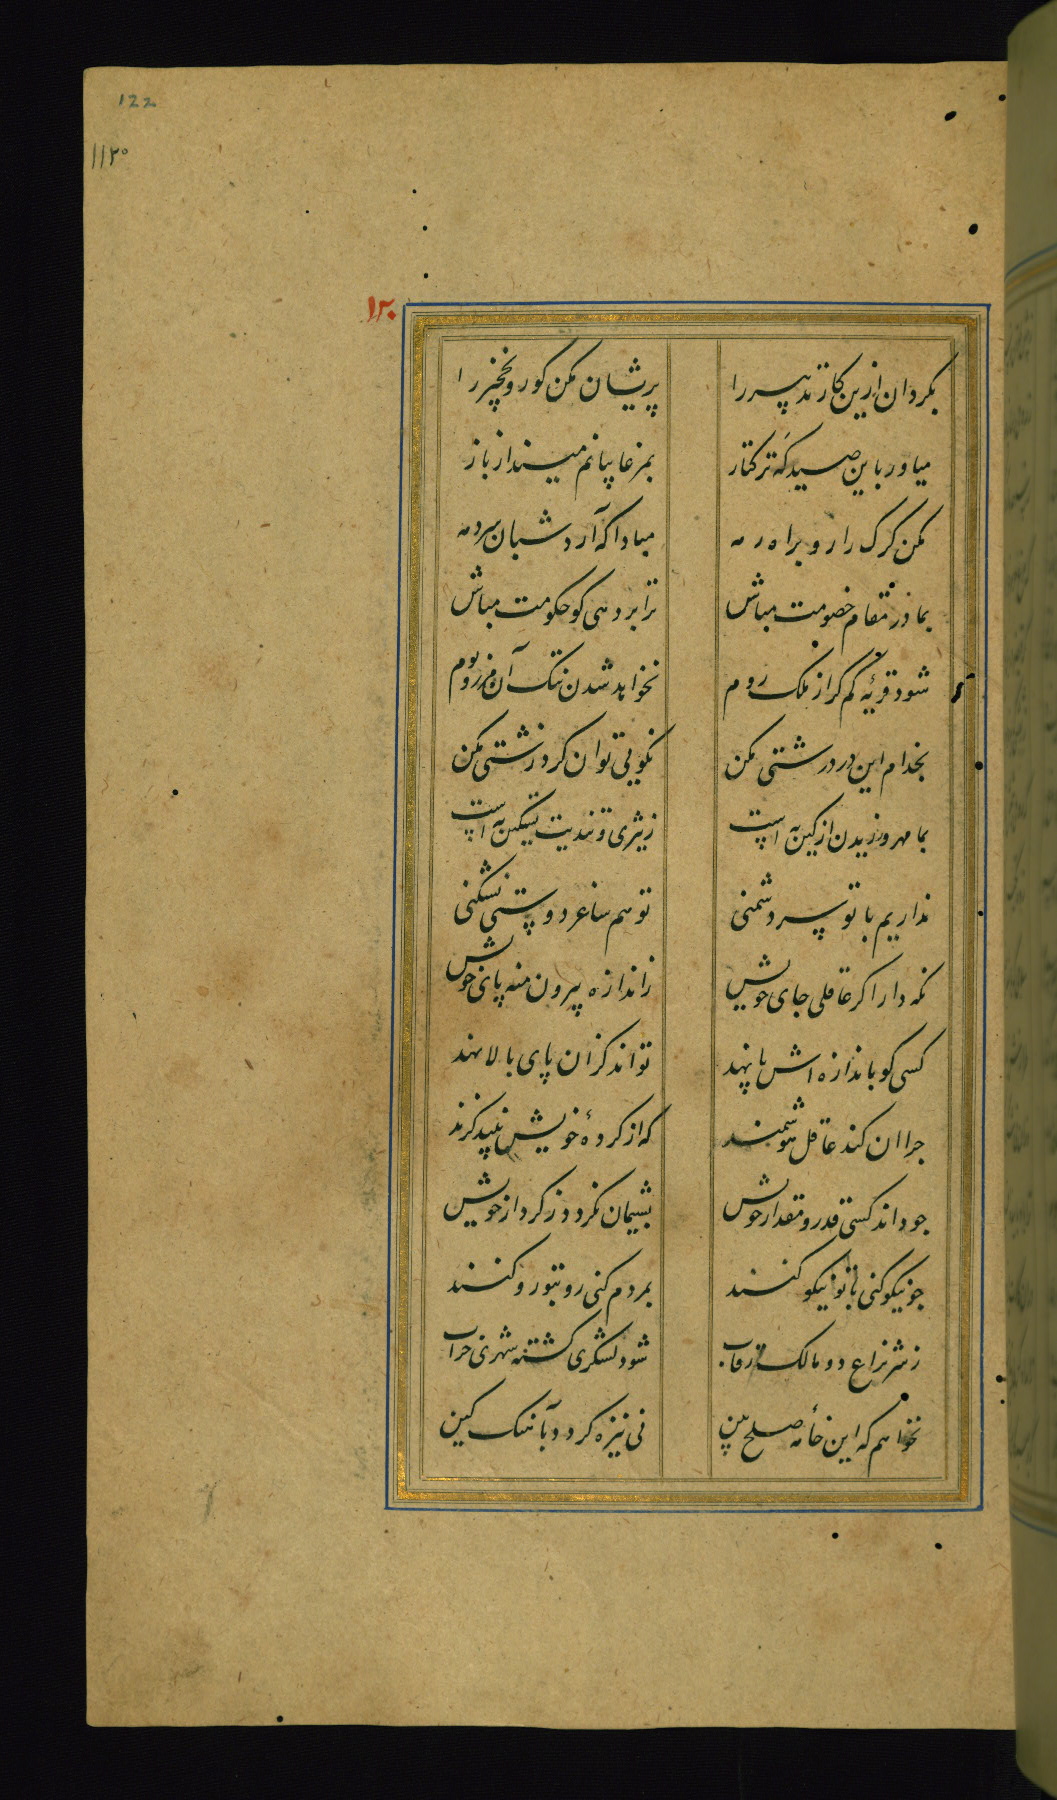 122
۱۱۲۰
۱۲۰
بکردان ازین کار تدبیر را پریشان مکن کور و نخچیر را
میاور باین صیدکه ترکتاز بمرغابیانم مینداز باز
مکن کرک را روبراه رمه مبادا که آرد شبان سر دمه
بما در مقام خصومت مباش ترا بر دهی کو حکومت مباش
شود قریهٔ کم کر از ملک روم نخواهد شدن تنک آن مرز و بوم
بخدام این در درشتی مکن نکویی توان کرد زشتی مکن
بما مهر ورزیدن از کین به است ز تیزی و تندیت تسکین به است
نداریم با تو سر دشمنی تو هم ساغر دوستی نشکنی
نکه دار اکر عاقلی جای خویش ز اندازه بیرون منه پای خویش
کسی کو باندازه اش پا نهد تواند کزان پای بالا نهد
چرا آن کند عاقل هوشمند که از کردهٔ خویش بیند کزند
چو داند کسی قدر و مقدار خویش پشیمان نکردد ز کردار خویش
چو نیکو کنی با تو نیکو کنند بمردم کنی رو بتو رو کنند
ز شر نزاع دو مالک رقاب شود لشکری کشته شهری خراب
نخواهم که این خامهٔ صلح بین نی نیزه کردد بآهنک کین